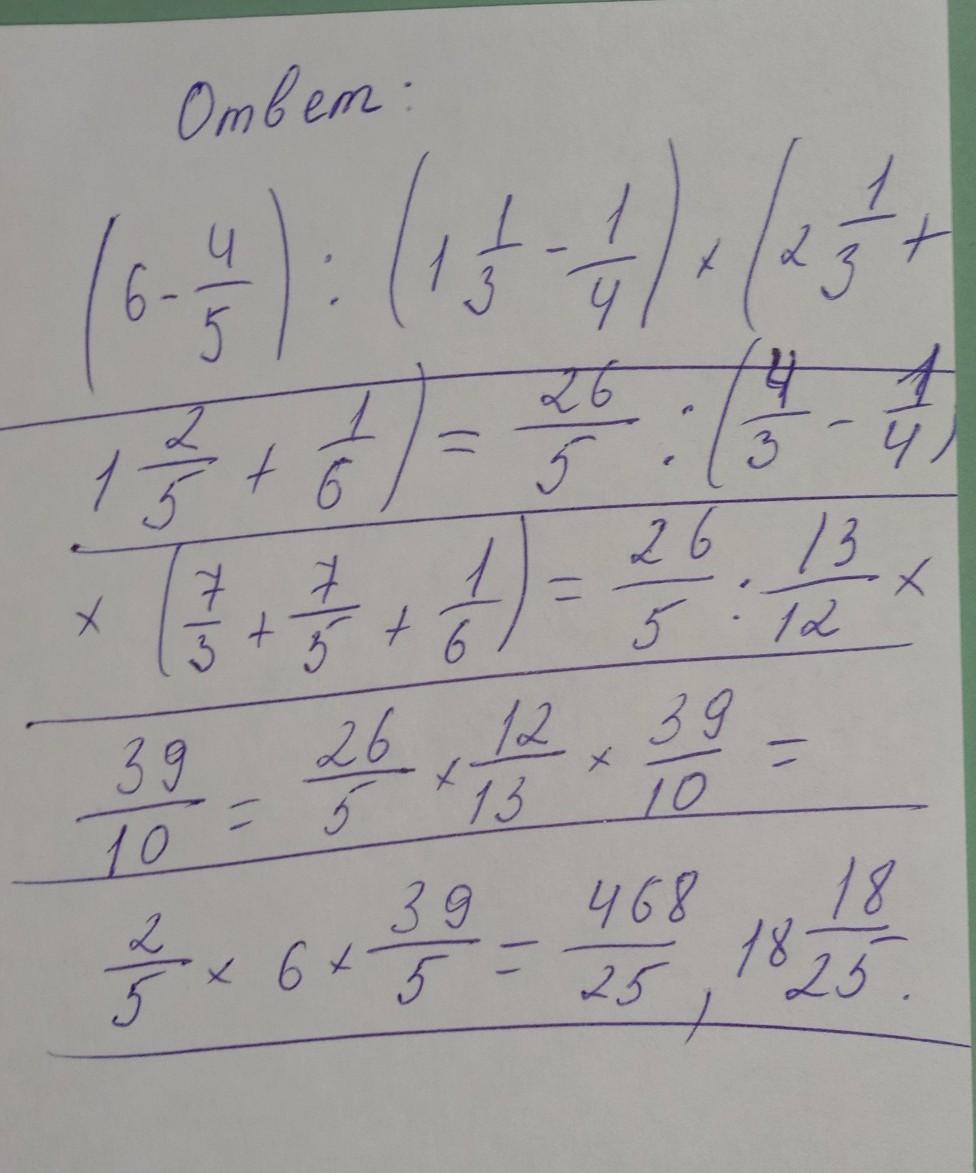 Ответ:
(6 - 4/5) : (1 1/3 - 1/4) × (2 1/3 +
1 2/5 + 1/6) = 26/5 : (4/3 - 1/4)
× (7/3 + 7/5 + 1/6) = 26/5 : 13/12 ×
39/10 = 26/5 × 12/13 × 39/10 =
2/5 × 6 × 39/5 = 468/25, 18 18/25.